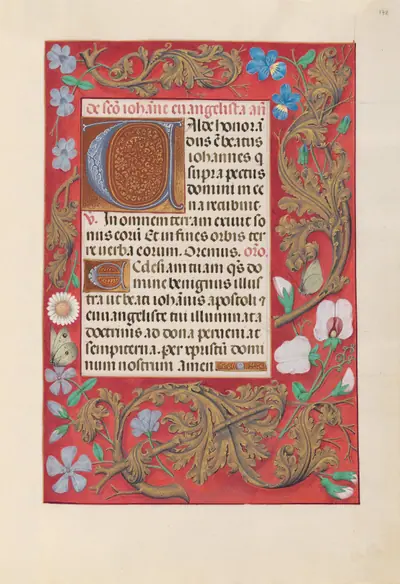 De scō iohāne euangelista añ
Ualde honorā
dus ē beatus
iohannes q
supra pectus
domini in ce
na recubuit.
V. In omnem terram exiuit so
nus eorū Et in fines orbis ter
re uerba eorum. Oremus. oro.
Ecclesiam tuam qs̄ do
mine benignus illus
tra ut beati iohānis apostoli ⁊
euangeliste tui illuminata
doctrinis ad dona perueniat
sempiterna. Per xpristū domi
num nostrum amen